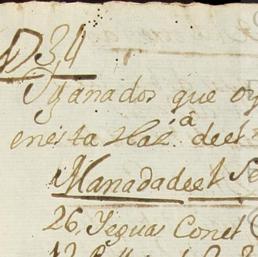 D 34
Y ganados que oy
en esta Haz.ª de el
Manada de el Se
26. Yeguas Con el